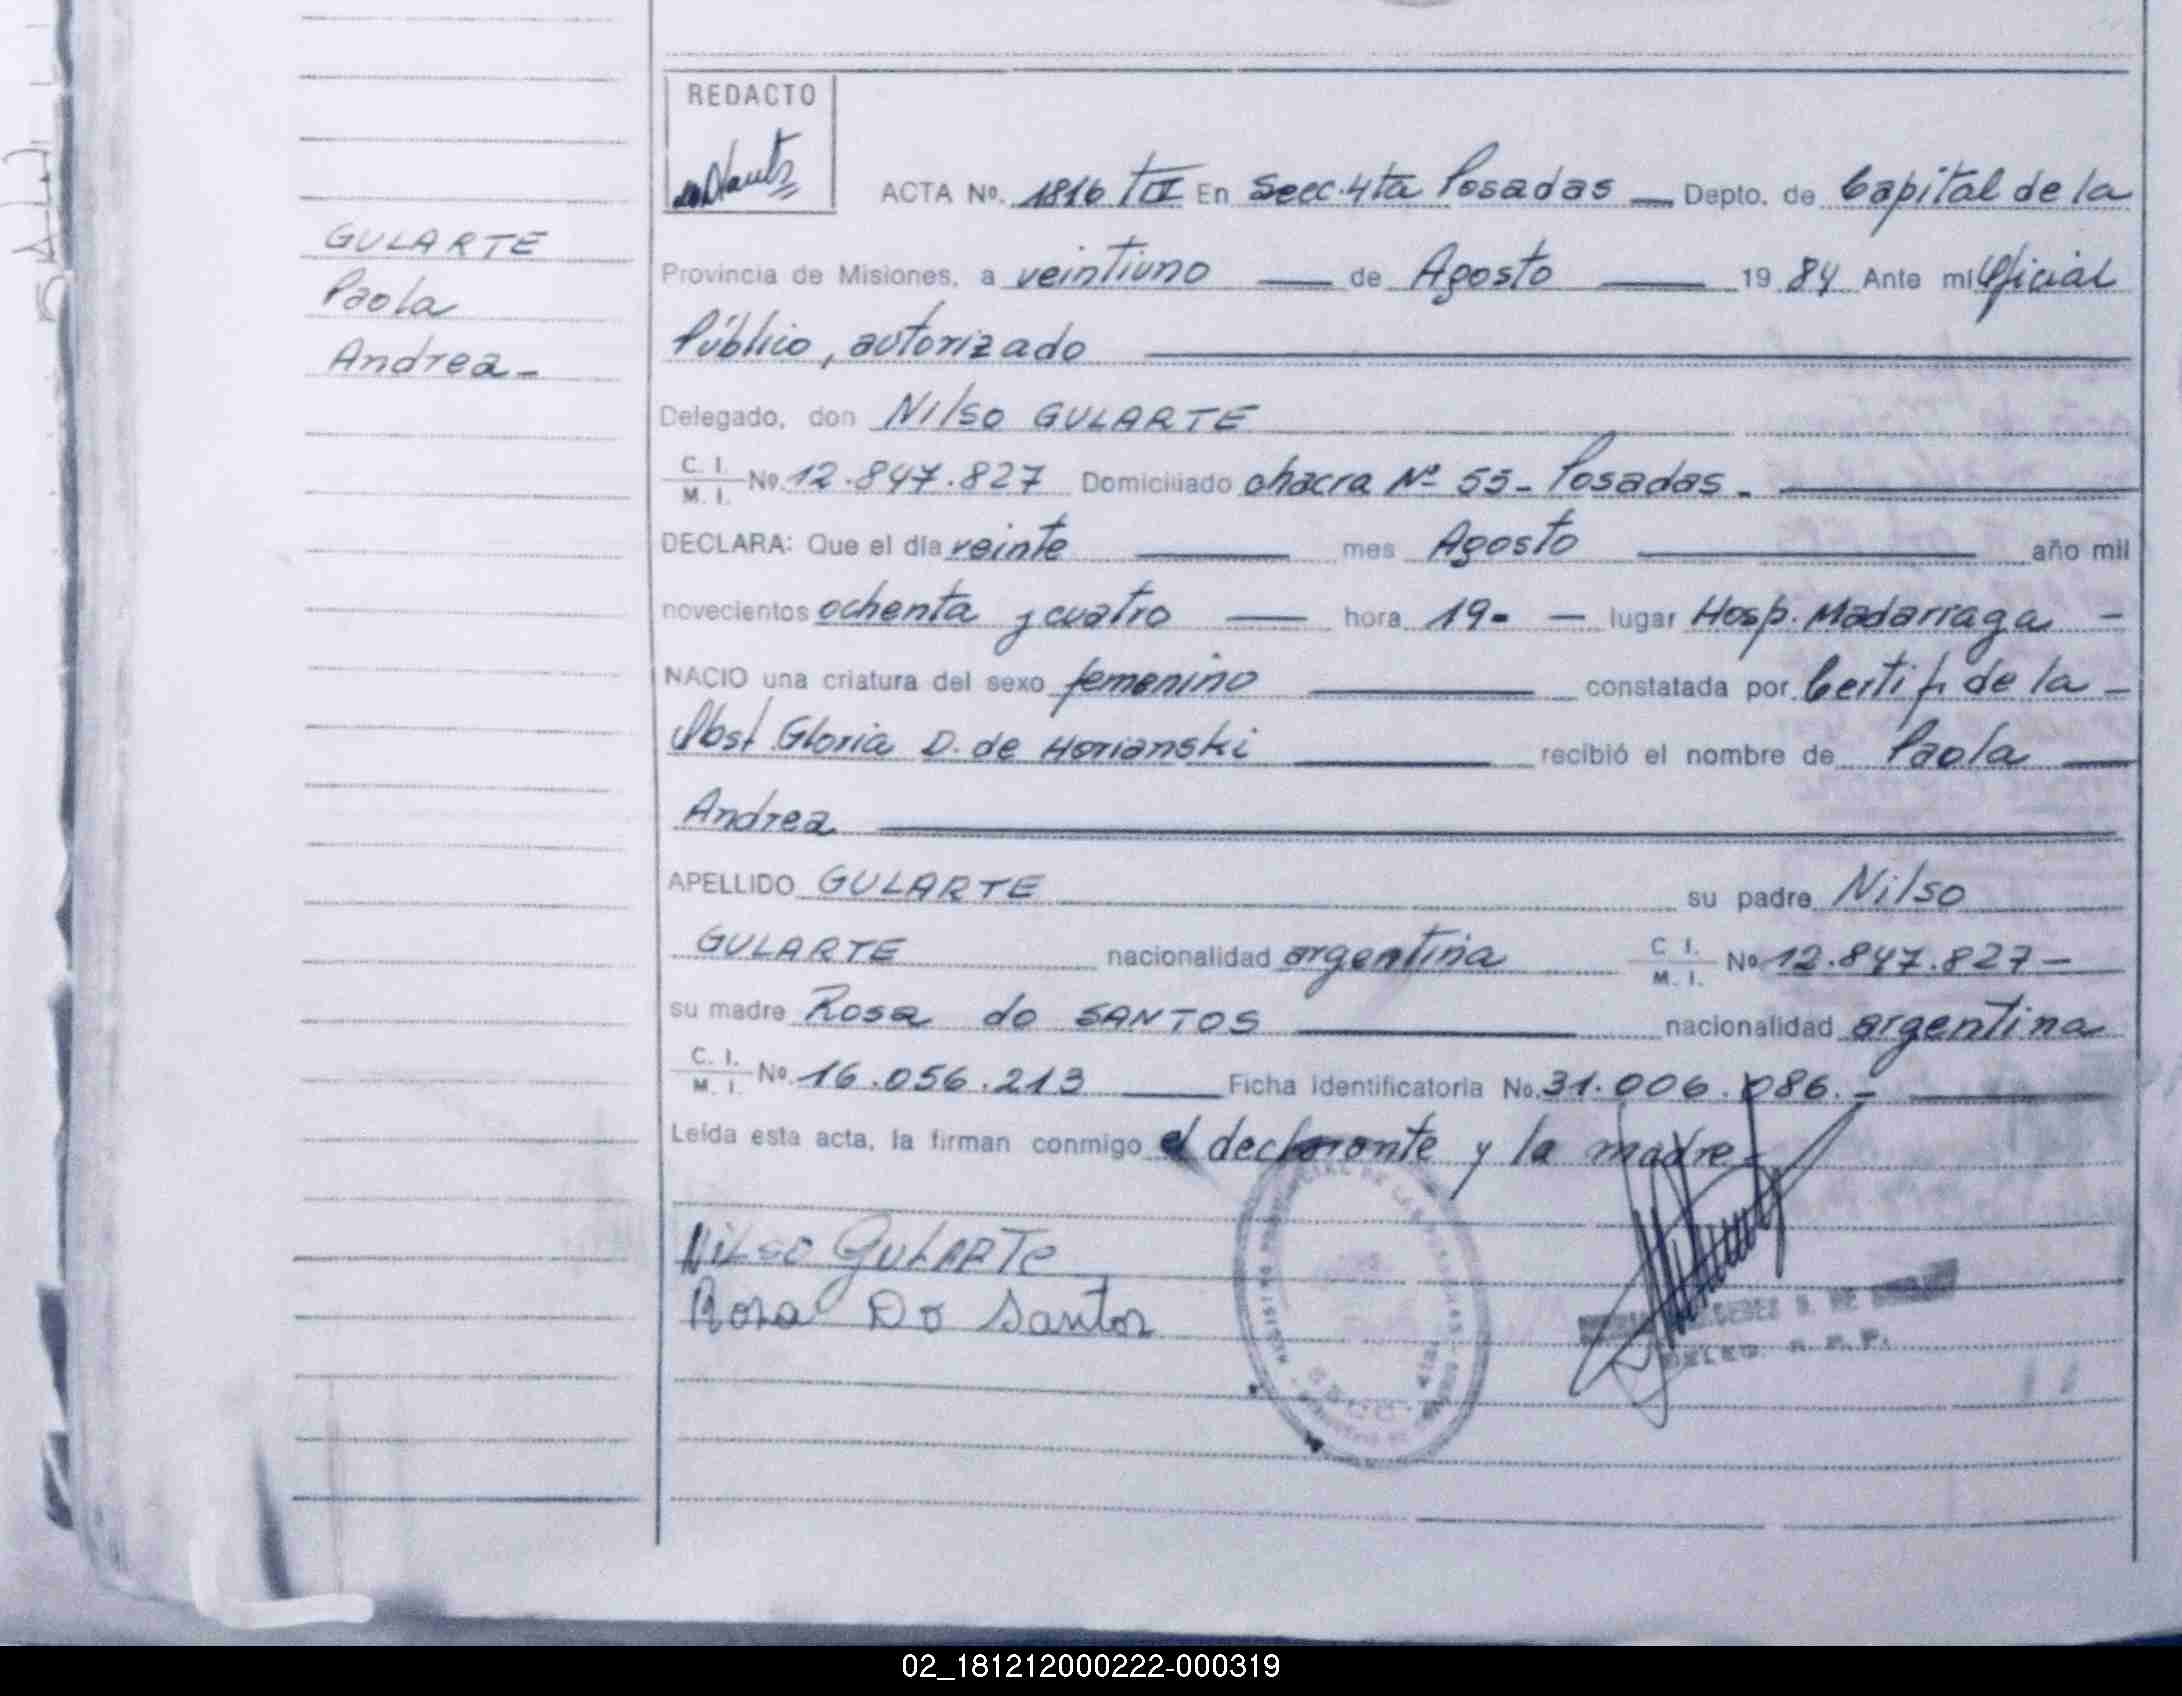 REDACTO
ACTA No. 1816 TIII En Secc. 4ta Posadas — Depto. de Capital de la
GULARTE
Paola
Andrea -
Provincia de Misiones, a veintiuno — de Agosto — 19 84 Ante mi Oficial
Público, autorizado
Delegado, don Nilso GULARTE
C. I. M. I. No. 12.847.827 Domiciliado chacra Nº 53 - Posadas.
DECLARA: Que el día veinte — mes Agosto — año mil
novecientos ochenta y cuatro — hora 19 - — lugar Hosp. Madarraga -
NACIO una criatura del sexo femenino — constatada por Certif. de la -
Obst Gloria D. de Horianski — recibió el nombre de Paola —
Andrea
APELLIDO GULARTE su padre Nilso
GULARTE nacionalidad argentina C. I. M. I. No 12.847.827 -
su madre Rosa do SANTOS — nacionalidad argentina
C. I. M. I. No. 16.056.213 — Ficha Identificatoria No. 31.006.086.-
Leída esta acta, la firman conmigo el declarante y la madre -
Nilso GULARTE
Rosa Do Santos
02_181212000222-000319